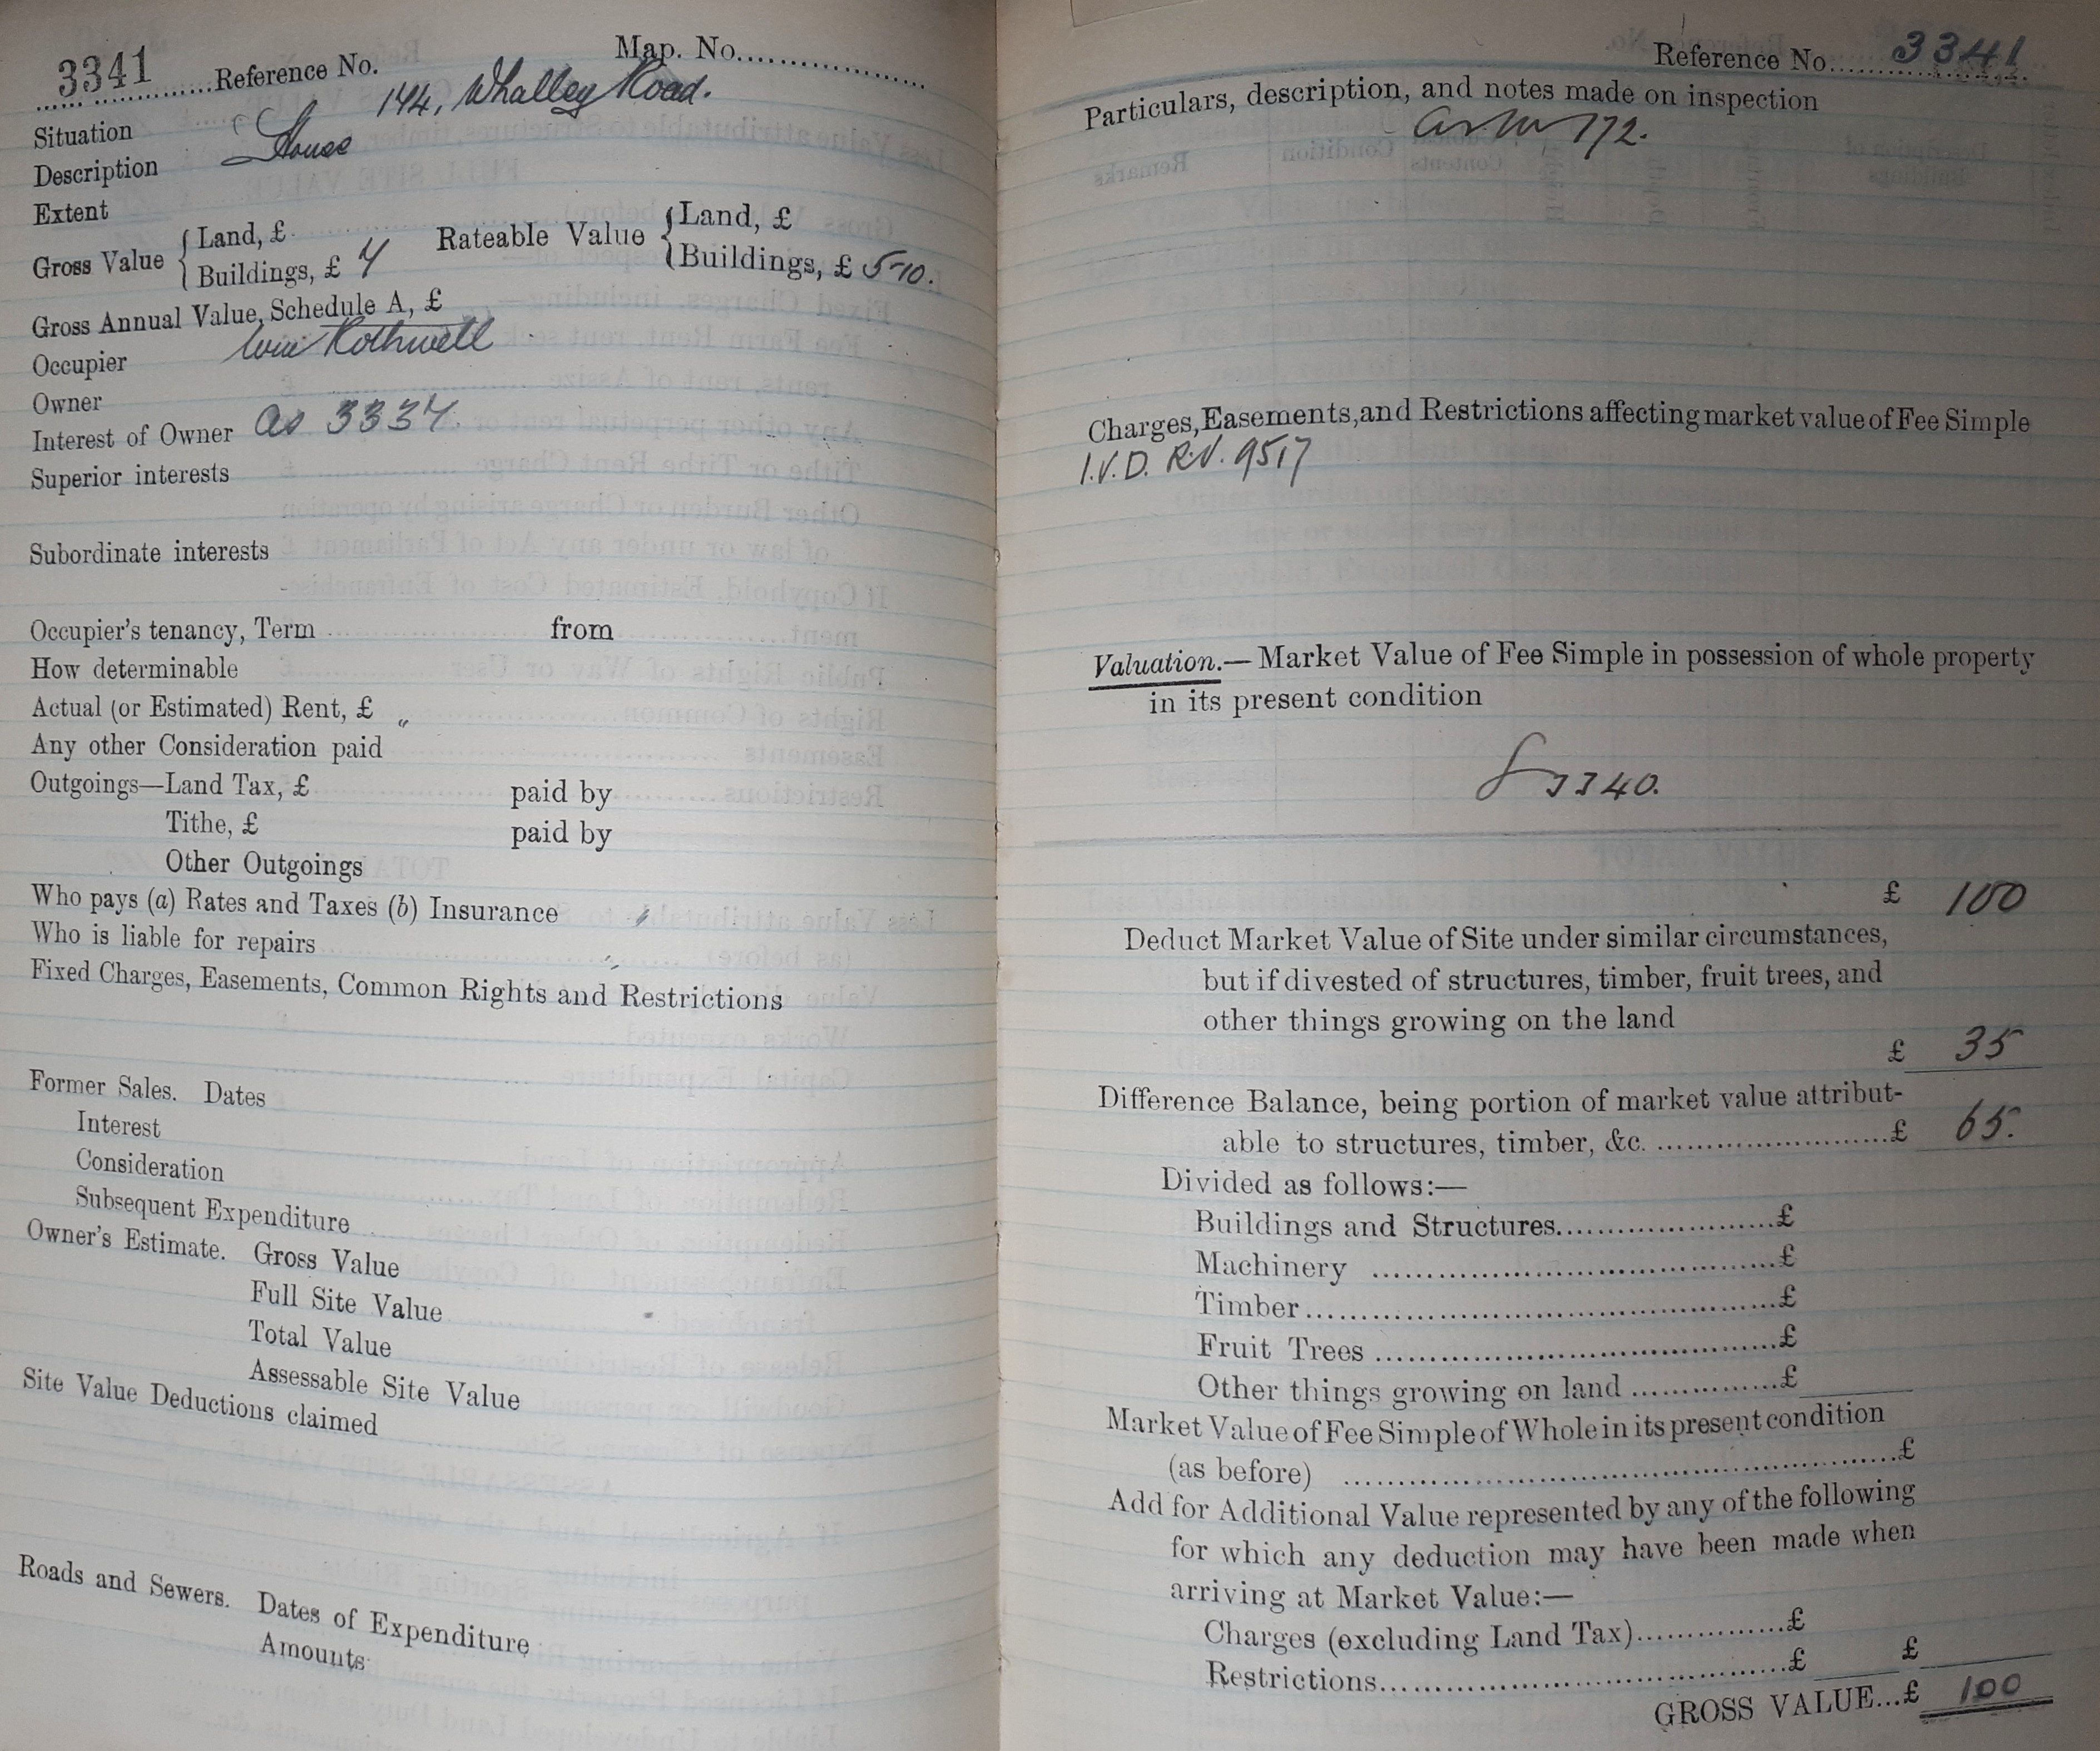 3341 Reference No. Map. No.
Situation 144, Whalley Road.
Description House
Extent
Gross Value { Land, £ Rateable Value { Land, £
Buildings, £ 7 Buildings, £ 5-10.
Gross Annual Value, Schedule A, £
Occupier Wm Rothwell
Owner
Interest of Owner as 3337.
Superior interests
Subordinate interests
Occupier's tenancy, Term from
How determinable
Actual (or Estimated) Rent, £
Any other Consideration paid
Outgoings—Land Tax, £ paid by
Tithe, £ paid by
Other Outgoings
Who pays (a) Rates and Taxes (b) Insurance
Who is liable for repairs
Fixed Charges, Easements, Common Rights and Restrictions
Former Sales. Dates
Interest
Consideration
Subsequent Expenditure
Owner's Estimate. Gross Value
Full Site Value
Total Value
Assessable Site Value
Site Value Deductions claimed
Roads and Sewers. Dates of Expenditure
Amounts
Reference No. 3341
Particulars, description, and notes made on inspection
172.
Charges, Easements, and Restrictions affecting market value of Fee Simple
I.V.D. R.V. 9517
Valuation.—Market Value of Fee Simple in possession of whole property
in its present condition
3340.
£ 100
Deduct Market Value of Site under similar circumstances,
but if divested of structures, timber, fruit trees, and
other things growing on the land
£ 35
Difference Balance, being portion of market value attribut-
able to structures, timber, &c. £ 65.
Divided as follows:—
Buildings and Structures £
Machinery £
Timber £
Fruit Trees £
Other things growing on land £
Market Value of Fee Simple of Whole in its present condition
(as before) £
Add for Additional Value represented by any of the following
for which any deduction may have been made when
arriving at Market Value:—
Charges (excluding Land Tax) £
Restrictions £ £
GROSS VALUE...£ 100